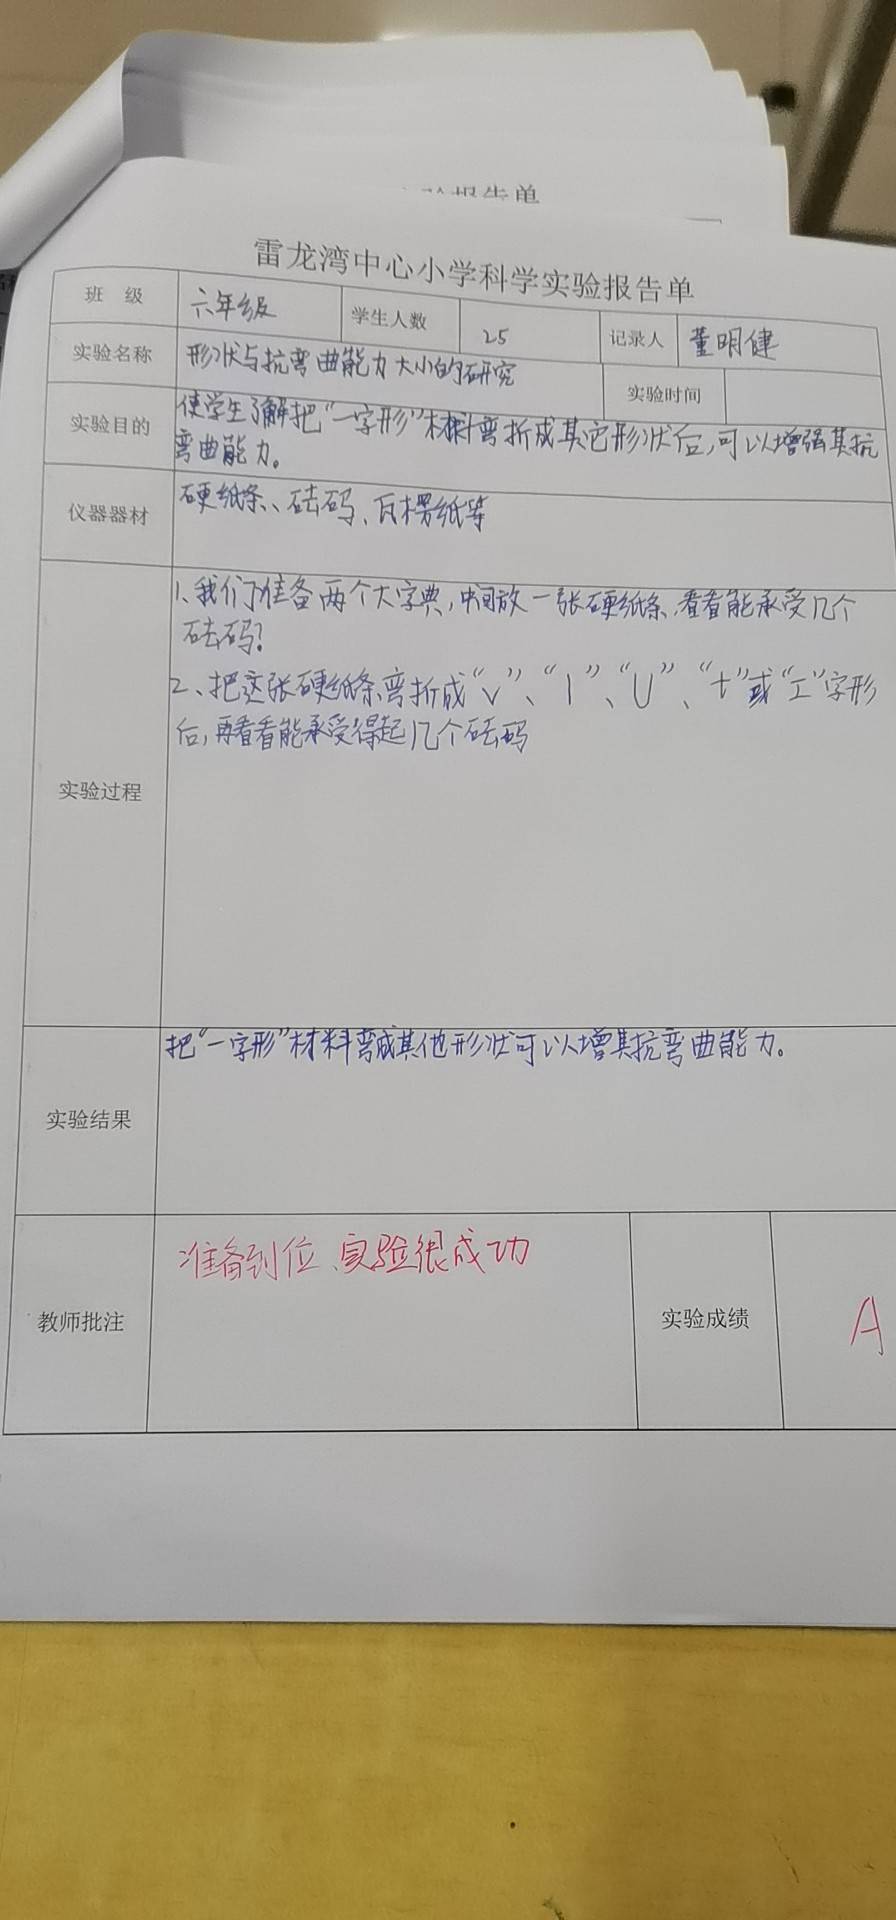 验报告单
雷龙湾中心小学科学实验报告单
班 级 六年级 学生人数 25 记录人 董明健
实验名称 形状与抗弯曲能力大小的研究 实验时间
实验目的 使学生了解把“一字形”材料弯折成其它形状后,可以增强其抗
弯曲能力。
仪器器材 硬纸条、砝码、瓦楞纸等
1、我们准备两个大字典,中间放一张硬纸条,看看能承受几个
砝码?
2、把这张硬纸条弯折成“V”、“l”、“U”、“t”或“工”字形
后,再看看能承受得起几个砝码
实验过程
把“一字形”材料弯成其他形状可以增其抗弯曲能力。
实验结果
准备到位、实验很成功
教师批注 实验成绩 A